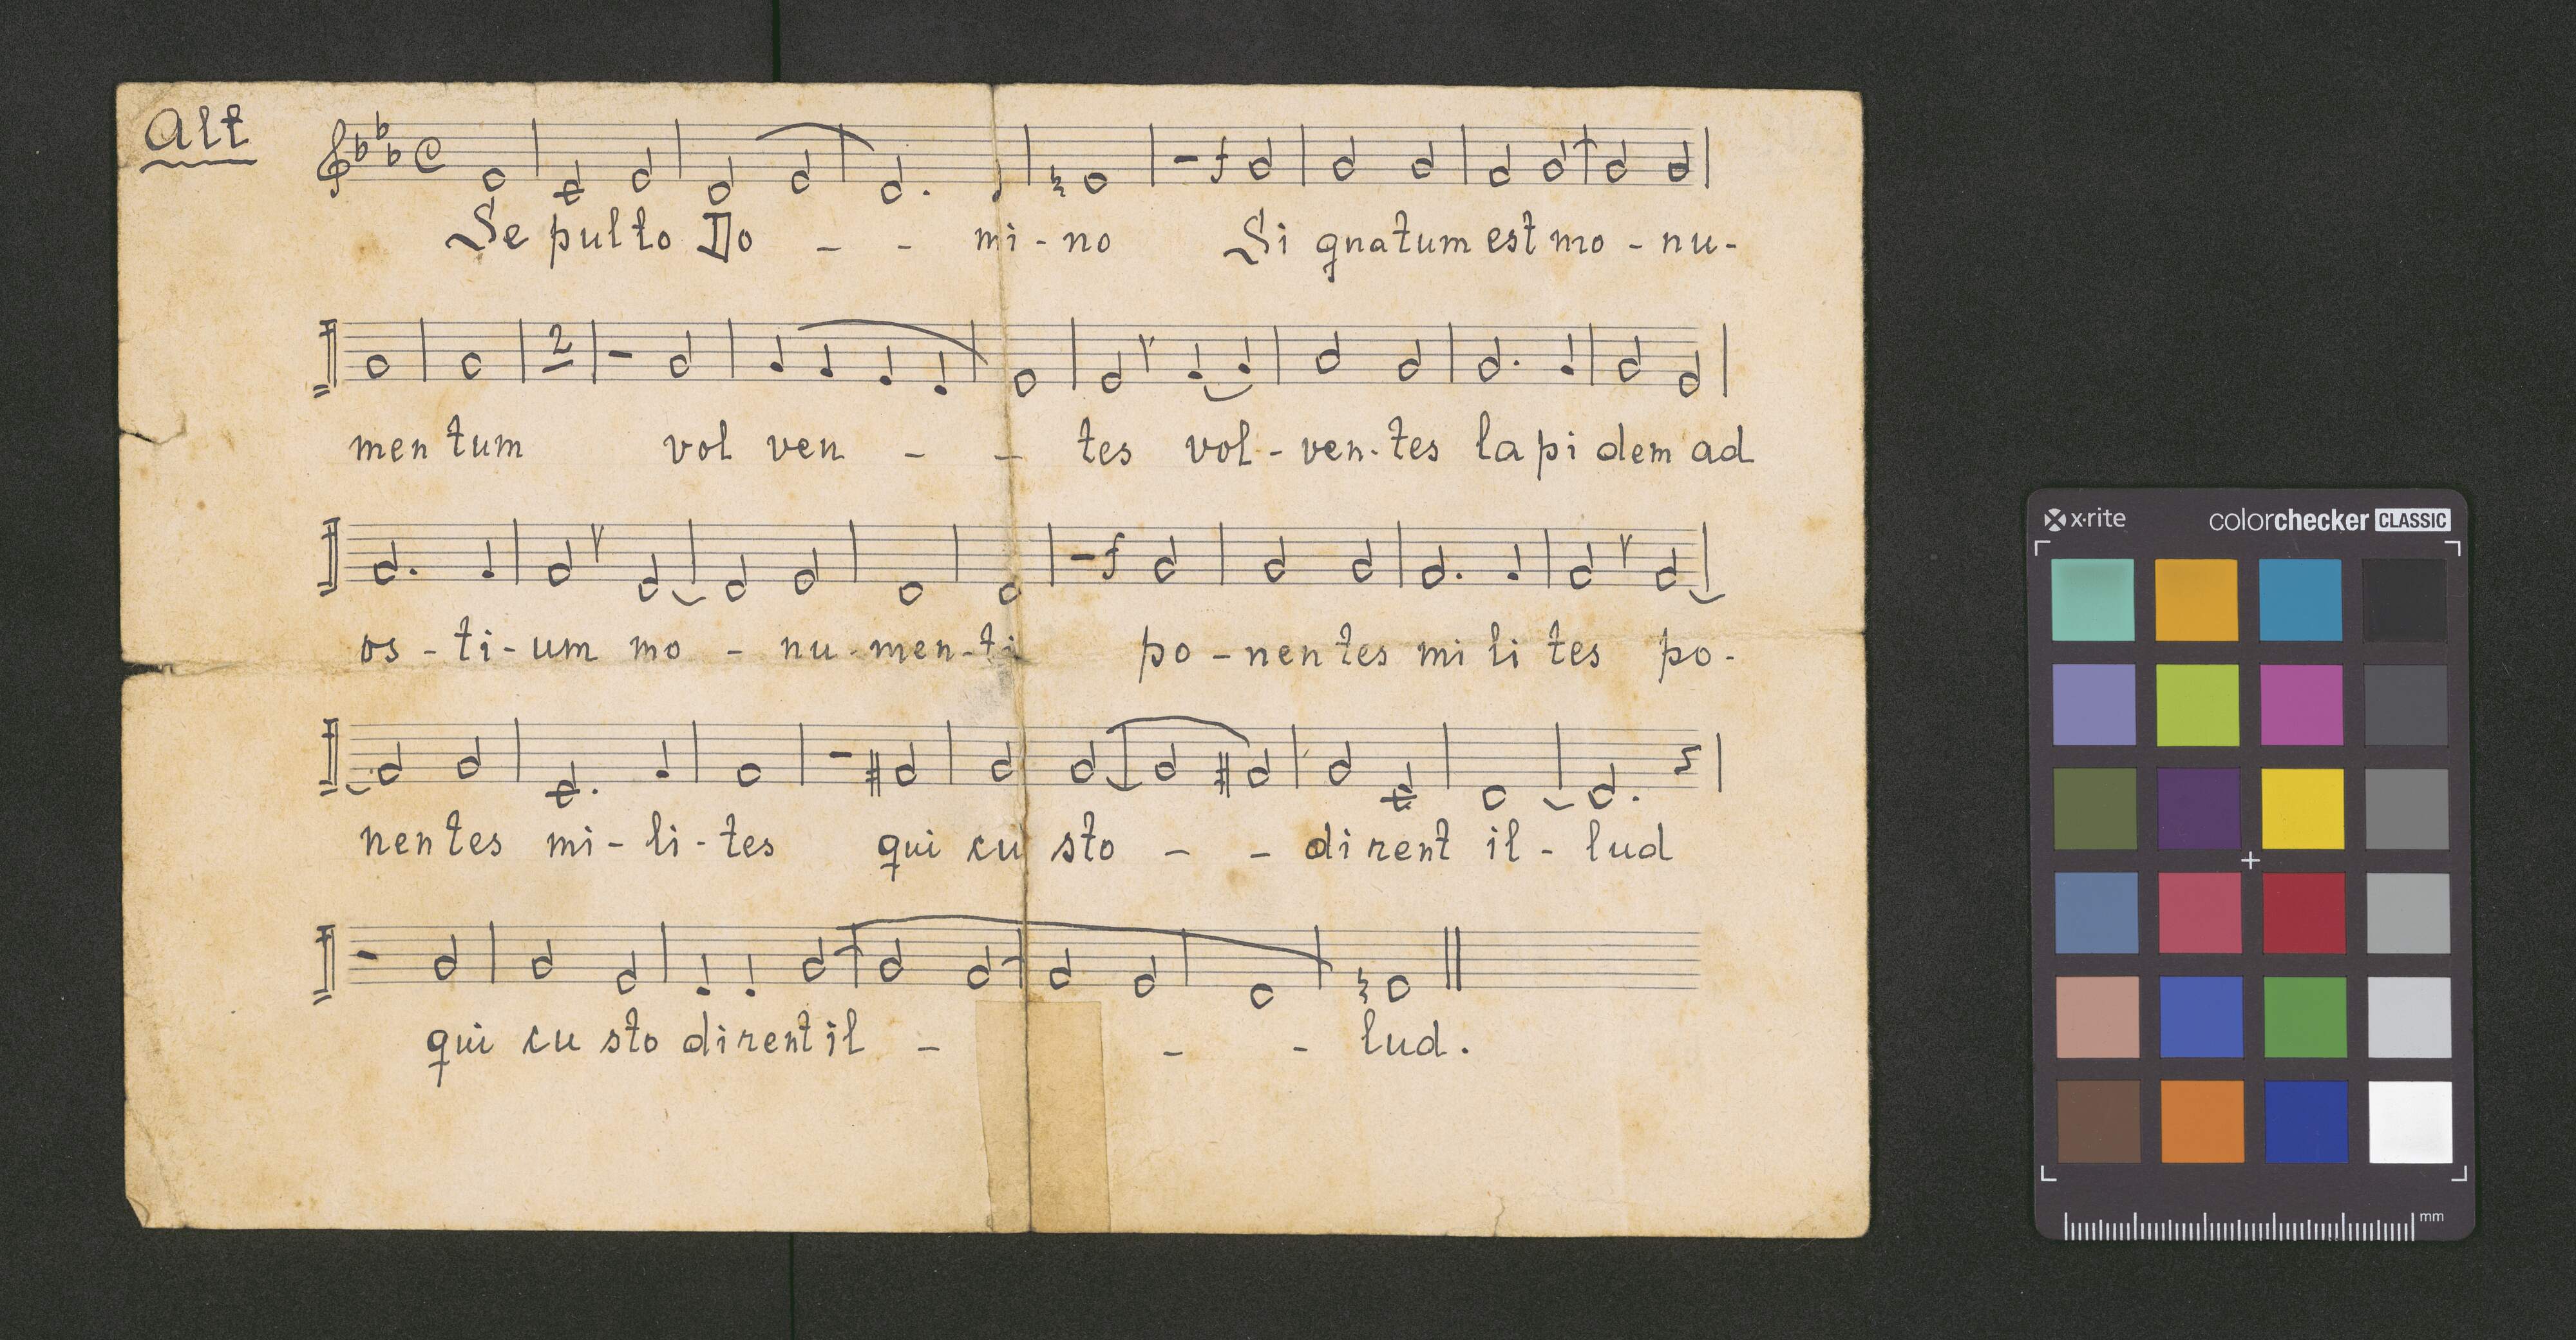 Alt
Se pul to Do - - mi - no Si gnatum est mo - nu-
2
men tum vol ven - - tes vol - ven - tes la pi dem ad
os - ti - um mo - nu - men - ti po - nen tes mi li tes po-
nen tes mi - li - tes qui cu sto - - di rent il - lud
qui cu sto di rent il - - - lud.
x·rite colorchecker CLASSIC
mm